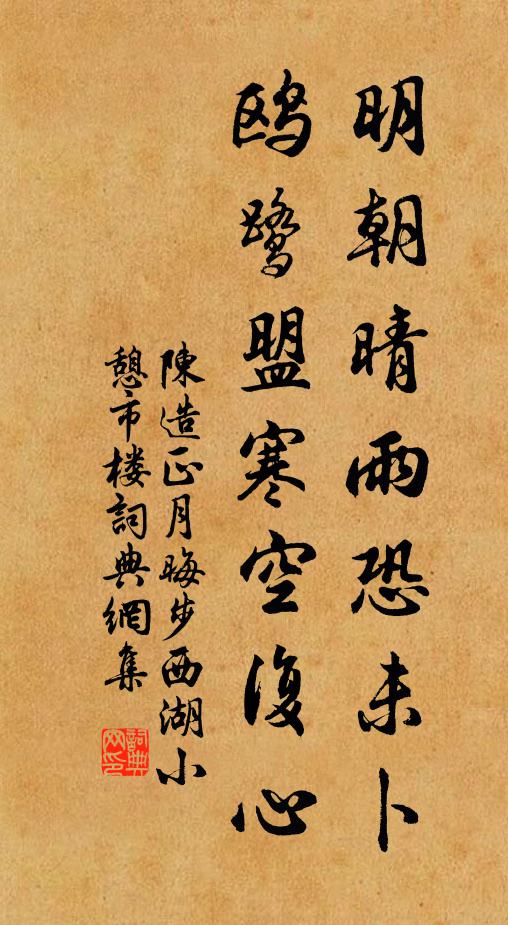 明朝晴雨恐未卜
鸥鹭盟寒空復心
陳造正月晦步西湖小
憩市楼詞典網集
詞典网印